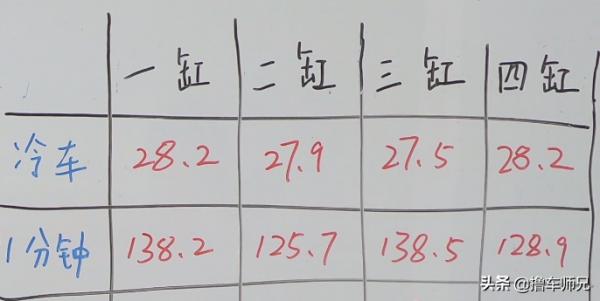 一缸 二缸 三缸 四缸
冷车 28.2 27.9 27.5 28.2
1分钟 138.2 125.7 138.5 128.9
头条 @撸车师兄